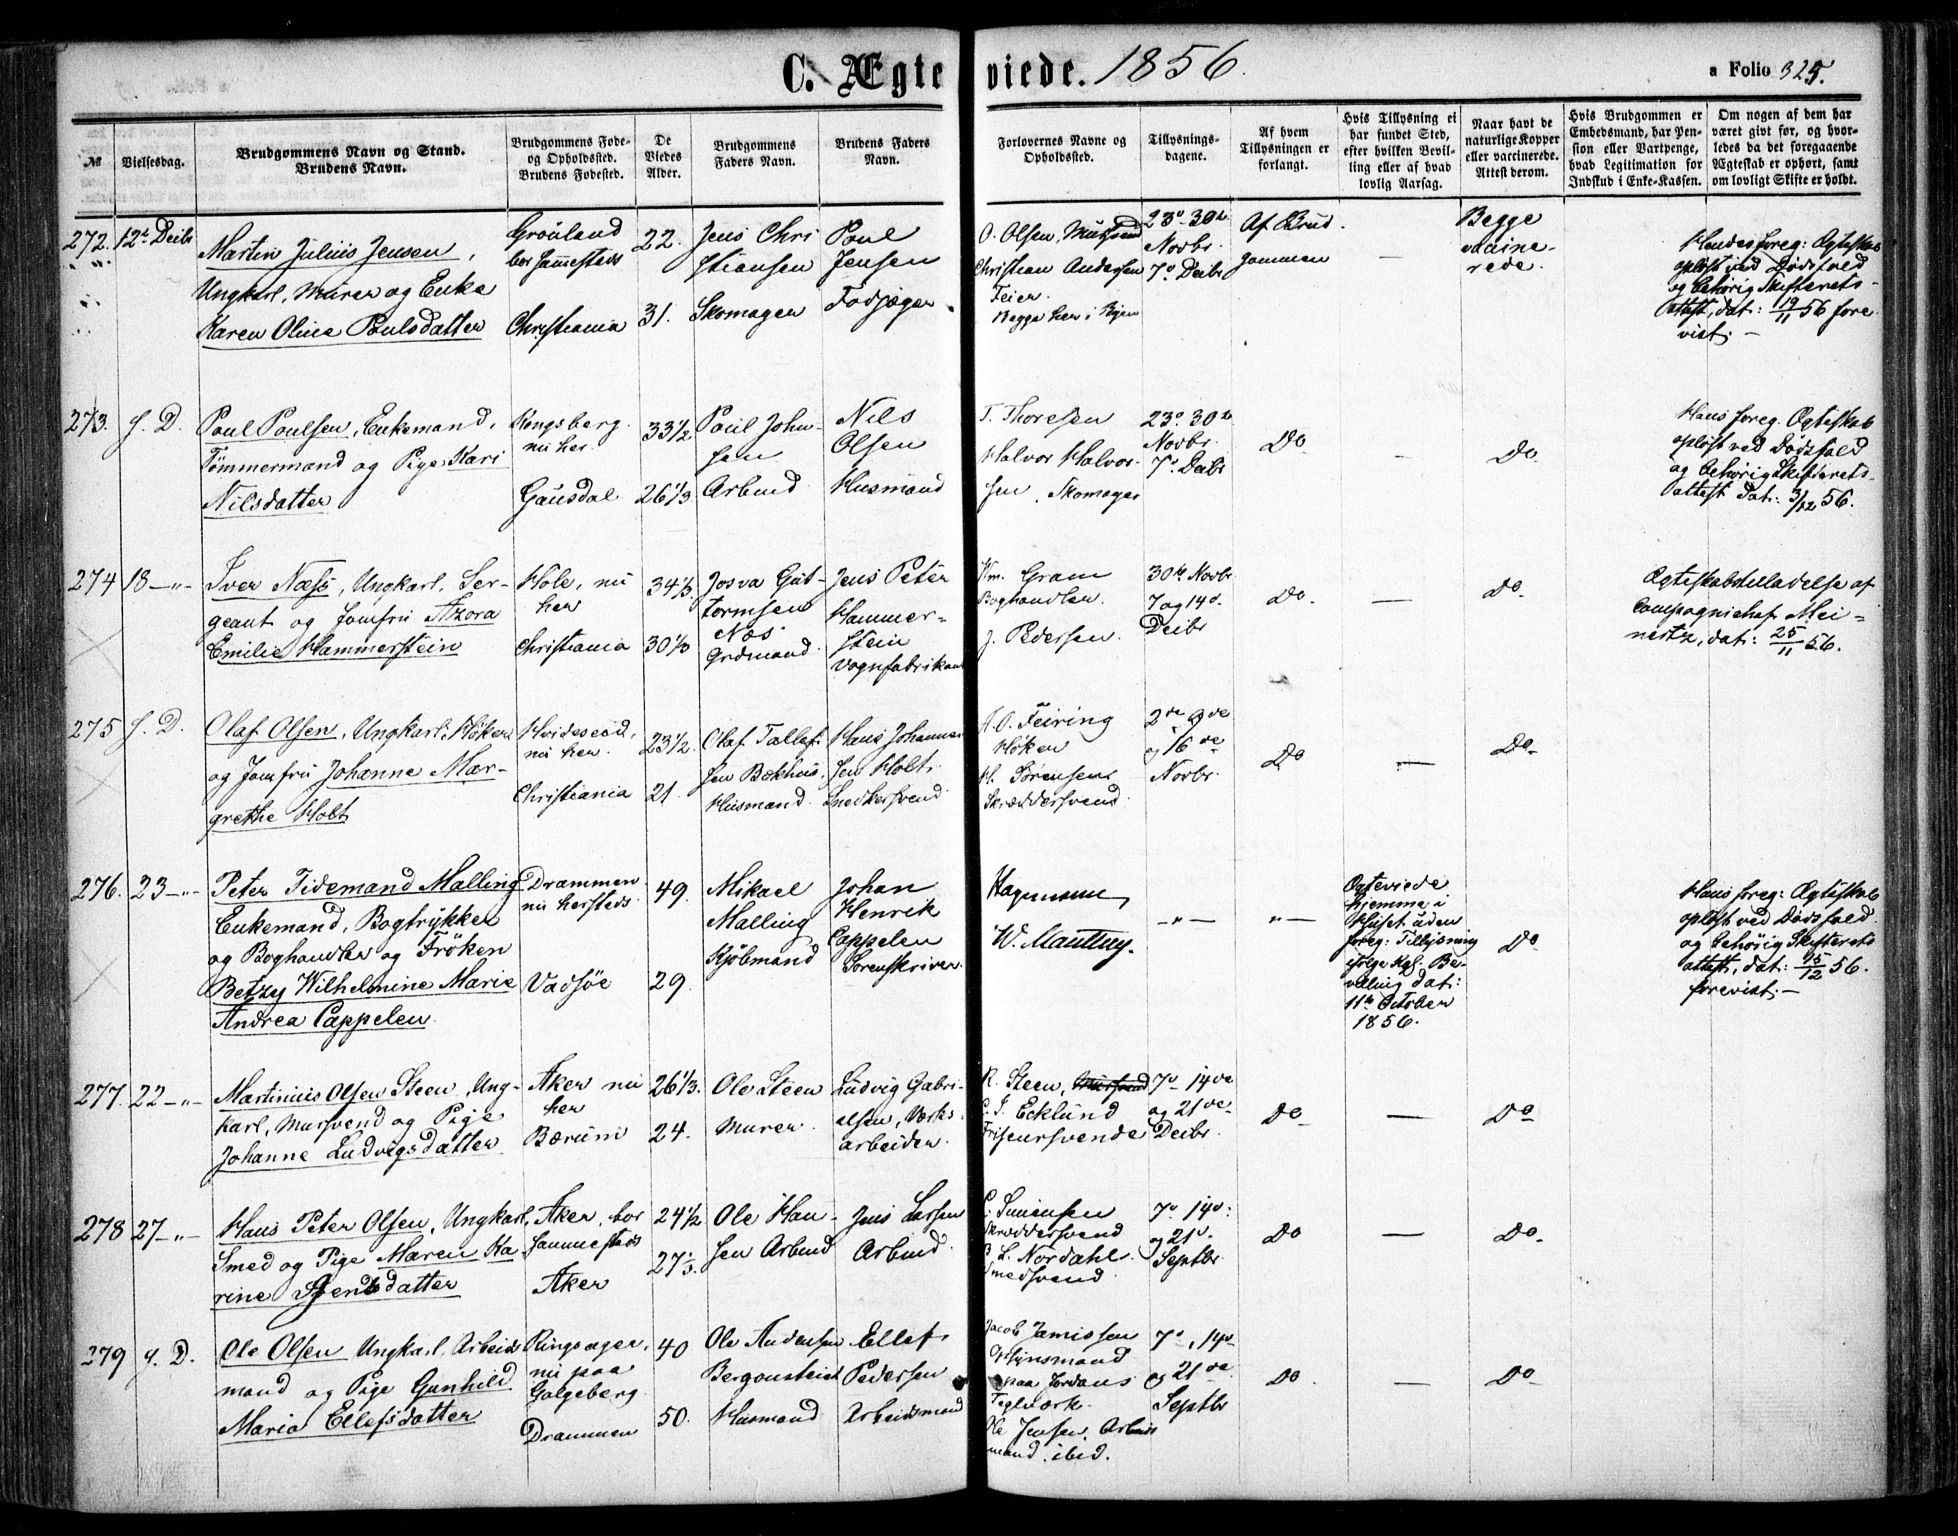 C. Ægteviede. 1856.
a Folio 325.
№
Vielsesdag.
Brudgommens Navn og Stand.
Brudens Navn.
Brudgommens Føde-
og Opholdssted.
Brudens Fødested.
De
Viedes
Alder.
Brudgommens
Faders Navn.
Brudens Faders
Navn.
Forlovernes Navne og
Opholdssted.
Tillysnings-
dagene.
Af hvem
Tillysningen er
forlangt.
Hvis Tillysning ei
har fundet Sted,
efter hvilken Bevil-
ling eller af hvad
lovlig Aarsag.
Naar havt de
naturlige Kopper
eller vaccinerede.
Attest derom.
Hvis Brudgommen er
Embedsmand, har Pen-
sion eller Vartpenge,
hvad Legitimation for
Indskud i Enke-Kassen.
Om nogen af dem har
været gift før, og hvor-
ledes da det foregaaende
Ægteskab er ophørt, samt
om lovligt Skifte er holdt.
272. 12te Decbr
Martin Julius Jensen,
Ungkarl, Murer og Enke
Karen Oline Poulsdatter
Grönland
bor sammesteds
Christiania
22.
31.
Jens Chri
stiansen
Skomager
Poul
Jensen
Fodjæger
O. Olsen, Mursvend
Christian Andersen
Feier.
Begge her i Byen
23de 30te
Novbr.
7de Decbr
Af Brud
gommen
—
Begge
vaccine-
rede.
Hendes foreg: Ægteskab
opløst ved Dødsfald
og behørig Skifterets-
attest, dat: 19/11 56 fore
vist. —
273. s. D.
Poul Poulsen, Enkemand,
Tömmermand og Pige Kari
Nilsdatter
Kongsberg
nu her.
Gausdal
33 1/2
26 1/3
Poul John-
sen
Arbmd
Nils
Olsen
Husmand
T. Thoresen
Halvor Halvor-
sen, Skomager
23de 30te
Novbr.
7de Decbr
Do
—
Do.
Hans foreg. Ægteskab
opløst ved Dødsfald
og behørig Skifterets-
attest dat: 3/12 56.
274 18 —"—
Iver Næss, Ungkarl, Ser-
geant og Jomfru Azora
Emilie Hammerstein
Hole, nu
her
Christiania
34 1/3
30 1/3
Josva Gut-
tormsen
Næs
Grdmand
Jens Peter
Hammer-
stein
Vognfabrikant
Wm. Gram
Boghandler.
J. Pedersen.
30te Novbr
7 og 14de
Decbr
Do.
—
Do.
Ægteskabstilladelse af
Compagnichef Mei-
nertz, dat: 25/11 56.
275 s. D.
Olaf Olsen, Ungkarl, Höker
og Jomfru Johanne Mar-
grethe Holt
Hvideseid,
nu her.
Christiania
23 1/2
21.
Olaf Tallef-
sen Bækhus,
Husmand.
Hans Johanne-
sen Holt,
Snedkersvend.
A. O. Feiring
Höker
H. Sörensen
Skræddersvend.
2den 9de
og 16de
Novbr.
Do
—
Do-
276. 23 —"—
Peter Tidemand Malling
Enkemand, Bogtrykker
og Boghandler og Fröken
Betzy Wilhelmine Marie
Andrea Cappelen.
Drammen
nu hersteds.
Vadsöe
49.
29.
Mikael
Malling
Kjöbmand
Johan
Henrik
Cappelen
Sorenskriver.
W. Mauttuy.
—"—
"—
Ægteviede
hjemme i
Huset uden
foreg: Tillysning
ifölge Kgl: Be-
villing dat:
11te October
1856.
Do
Hans foreg: Ægteskab
opløst ved Dødsfald
og behørig Skifterets
attest, dat: 15/12 56.
forevist: —
277. 22 —"—
Martinius Olsen Steen, Ung-
karl, Mursvend og Pige
Johanne Ludvigsdatter
Aker nu
her
Bærum
26 1/3.
24.
Ole Steen
Murer
Ludvig Gabri-
elsen, Værks-
arbeider.
R. Steen, Mursvend
C. J. Ecklund
Friseursvende
7de 14de
og 21de
Decbr.
Do
—
Do
278 27 —"—
Hans Peter Olsen, Ungkarl,
Smed og Pige Maren Ka-
rine Jensdatter
Aker, bor
sammesteds
Aker
24 1/2
Ole Han-
sen Arbmd
Jens Larsen
Arbmd.
Simensen
Skræddersvend
L. Nordahl
Smedsvend.
7de 14de
og 21de
Septbr.
Do
—
Do-
279 s. D.
Ole Olsen Ungkarl, Arbeids
mand og Pige Gunhild
Maria Ellefsdatter
Ringsager,
nu paa
Galgeberg
Drammen
40
50.
Ole Andersen
Bergonsteiet
Husmand
Ellef
Pedersen
Arbeidsmand
Jacob Jamissen
Opsynsmand
paa Jordans
Teglværk.
Ole Jensen, Arbeids
mand, ibid.
7de, 14de
og 21de
Septbr
Do
—
Do